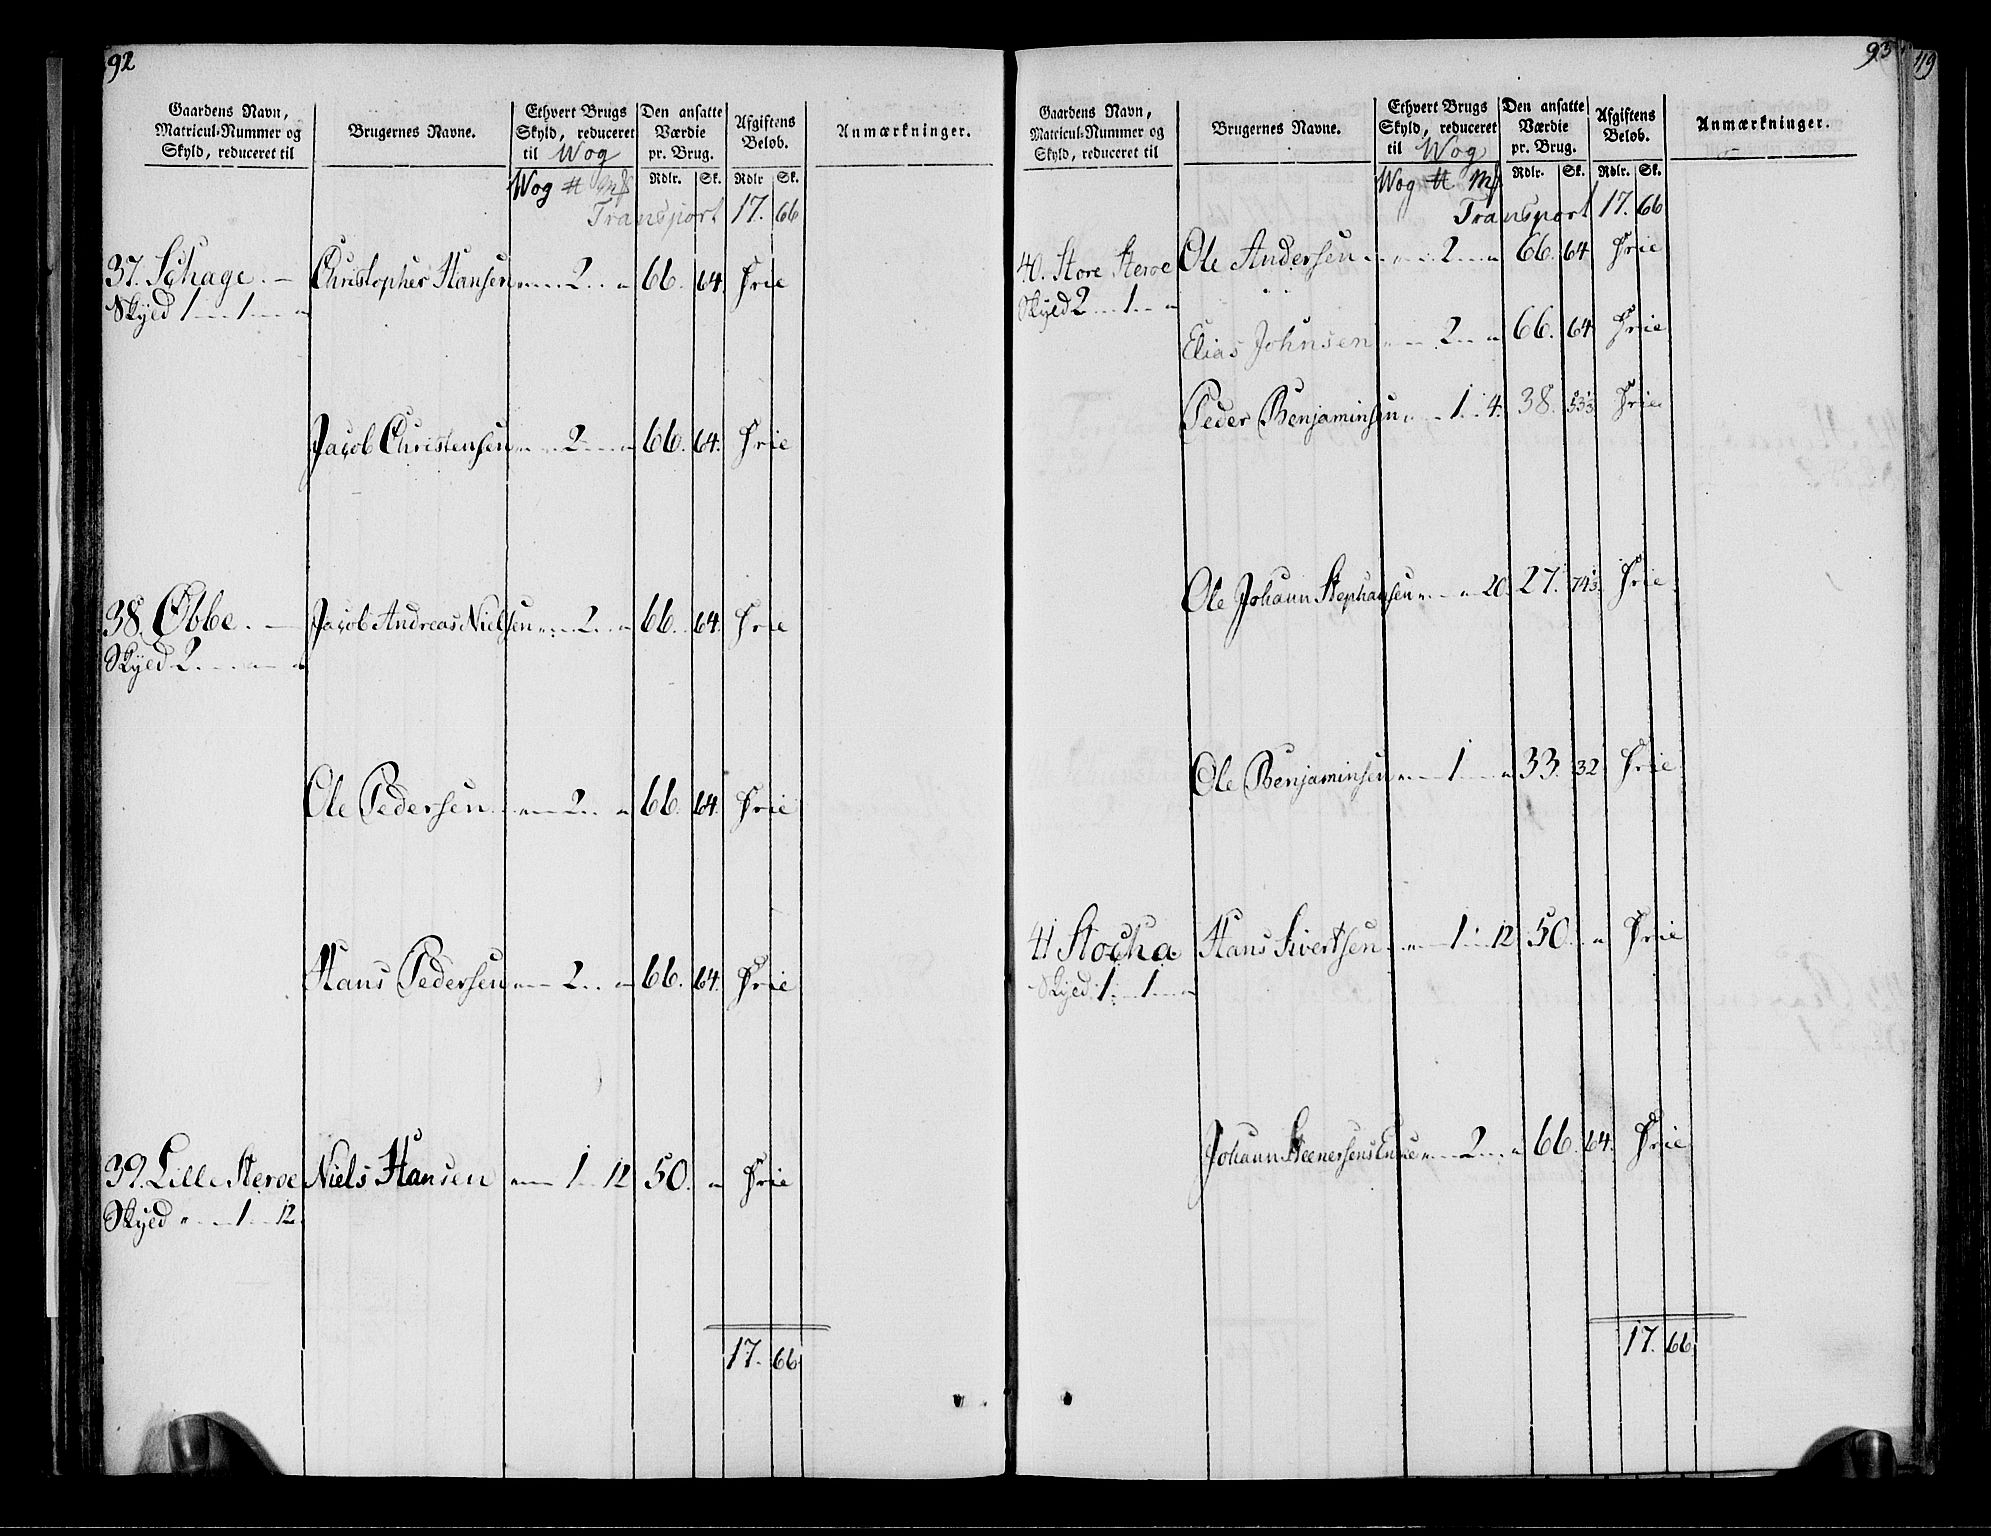 92
Gaardens Navn, Matricul-Nummer og Skyld, reduceret til | Brugernes Navne. | Ethvert Brugs Skyld, reduceret til Wog | Den ansatte Værdie pr. Brug. | Afgiftens Beløb. | Anmærkninger.
Wog ℔ Mk | Rdlr. | Sk. | Rdlr | Sk.
Transport 17. 66
37. Schage. — Christopher Hansen „ — 2 — „ 66. 64. Frie
Skyld 1 — 1 — „
Jacob Christensen „ — 2 — „ 66. 64. Frie
38. Obbe. — Jacob Andreas Nielsen „ — 2 — „ 66. 64. Frie
Skyld 2. — „ — „
Ole Pedersen „ — 2 — „ 66. 64. Frie
Hans Pedersen „ — 2 — „ 66. 64. Frie
39. Lille Steroe Niels Hansen „ — 1 — 12 50. „ Frie
Skyld „ — 1 — 12.
17. 66
93
119
Gaardens Navn, Matricul-Nummer og Skyld, reduceret til | Brugernes Navne. | Ethvert Brugs Skyld, reduceret til Wog | Den ansatte Værdie pr. Brug. | Afgiftens Beløb. | Anmærkninger.
Wog ℔ Mk | Rdlr. | Sk. | Rdlr. | Sk.
Transport 17. 66
40. Store Steroe Ole Andersen „ — 2 — „ 66. 64 Frie
Skyld 2 — 1 — „
Elias Johnsen „ — 2 — „ 66. 64 Frie
Peder Benjaminsen „ — 1 — 4. 38. Frie
Ole Johann Stephansen „ — „ 20. 27. Frie
Ole Benjaminsen „ — 1 — „ 33. 32 Frie
41 Stocha Hans Sivertsen „ — 1 — 12 50. „ Frie
Skyld 1 — 1 — „
Johann Steenersens Enke „ — 2 — „ 66. 64. Frie
17. 66.